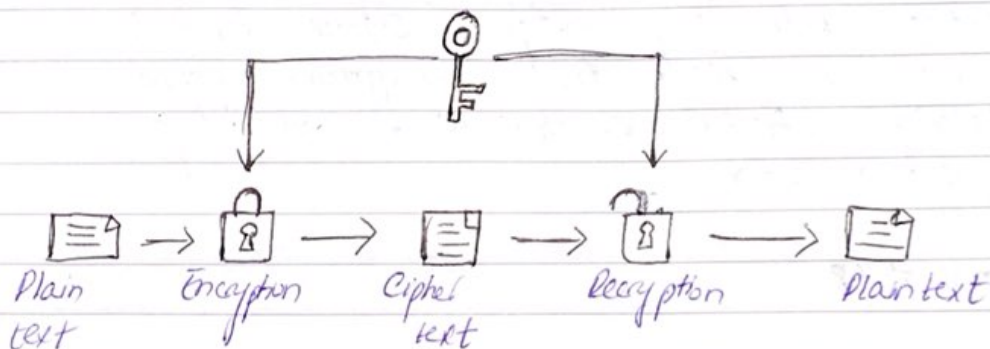 Plain
text
Encryption
Cipher
text
Decryption
Plain text